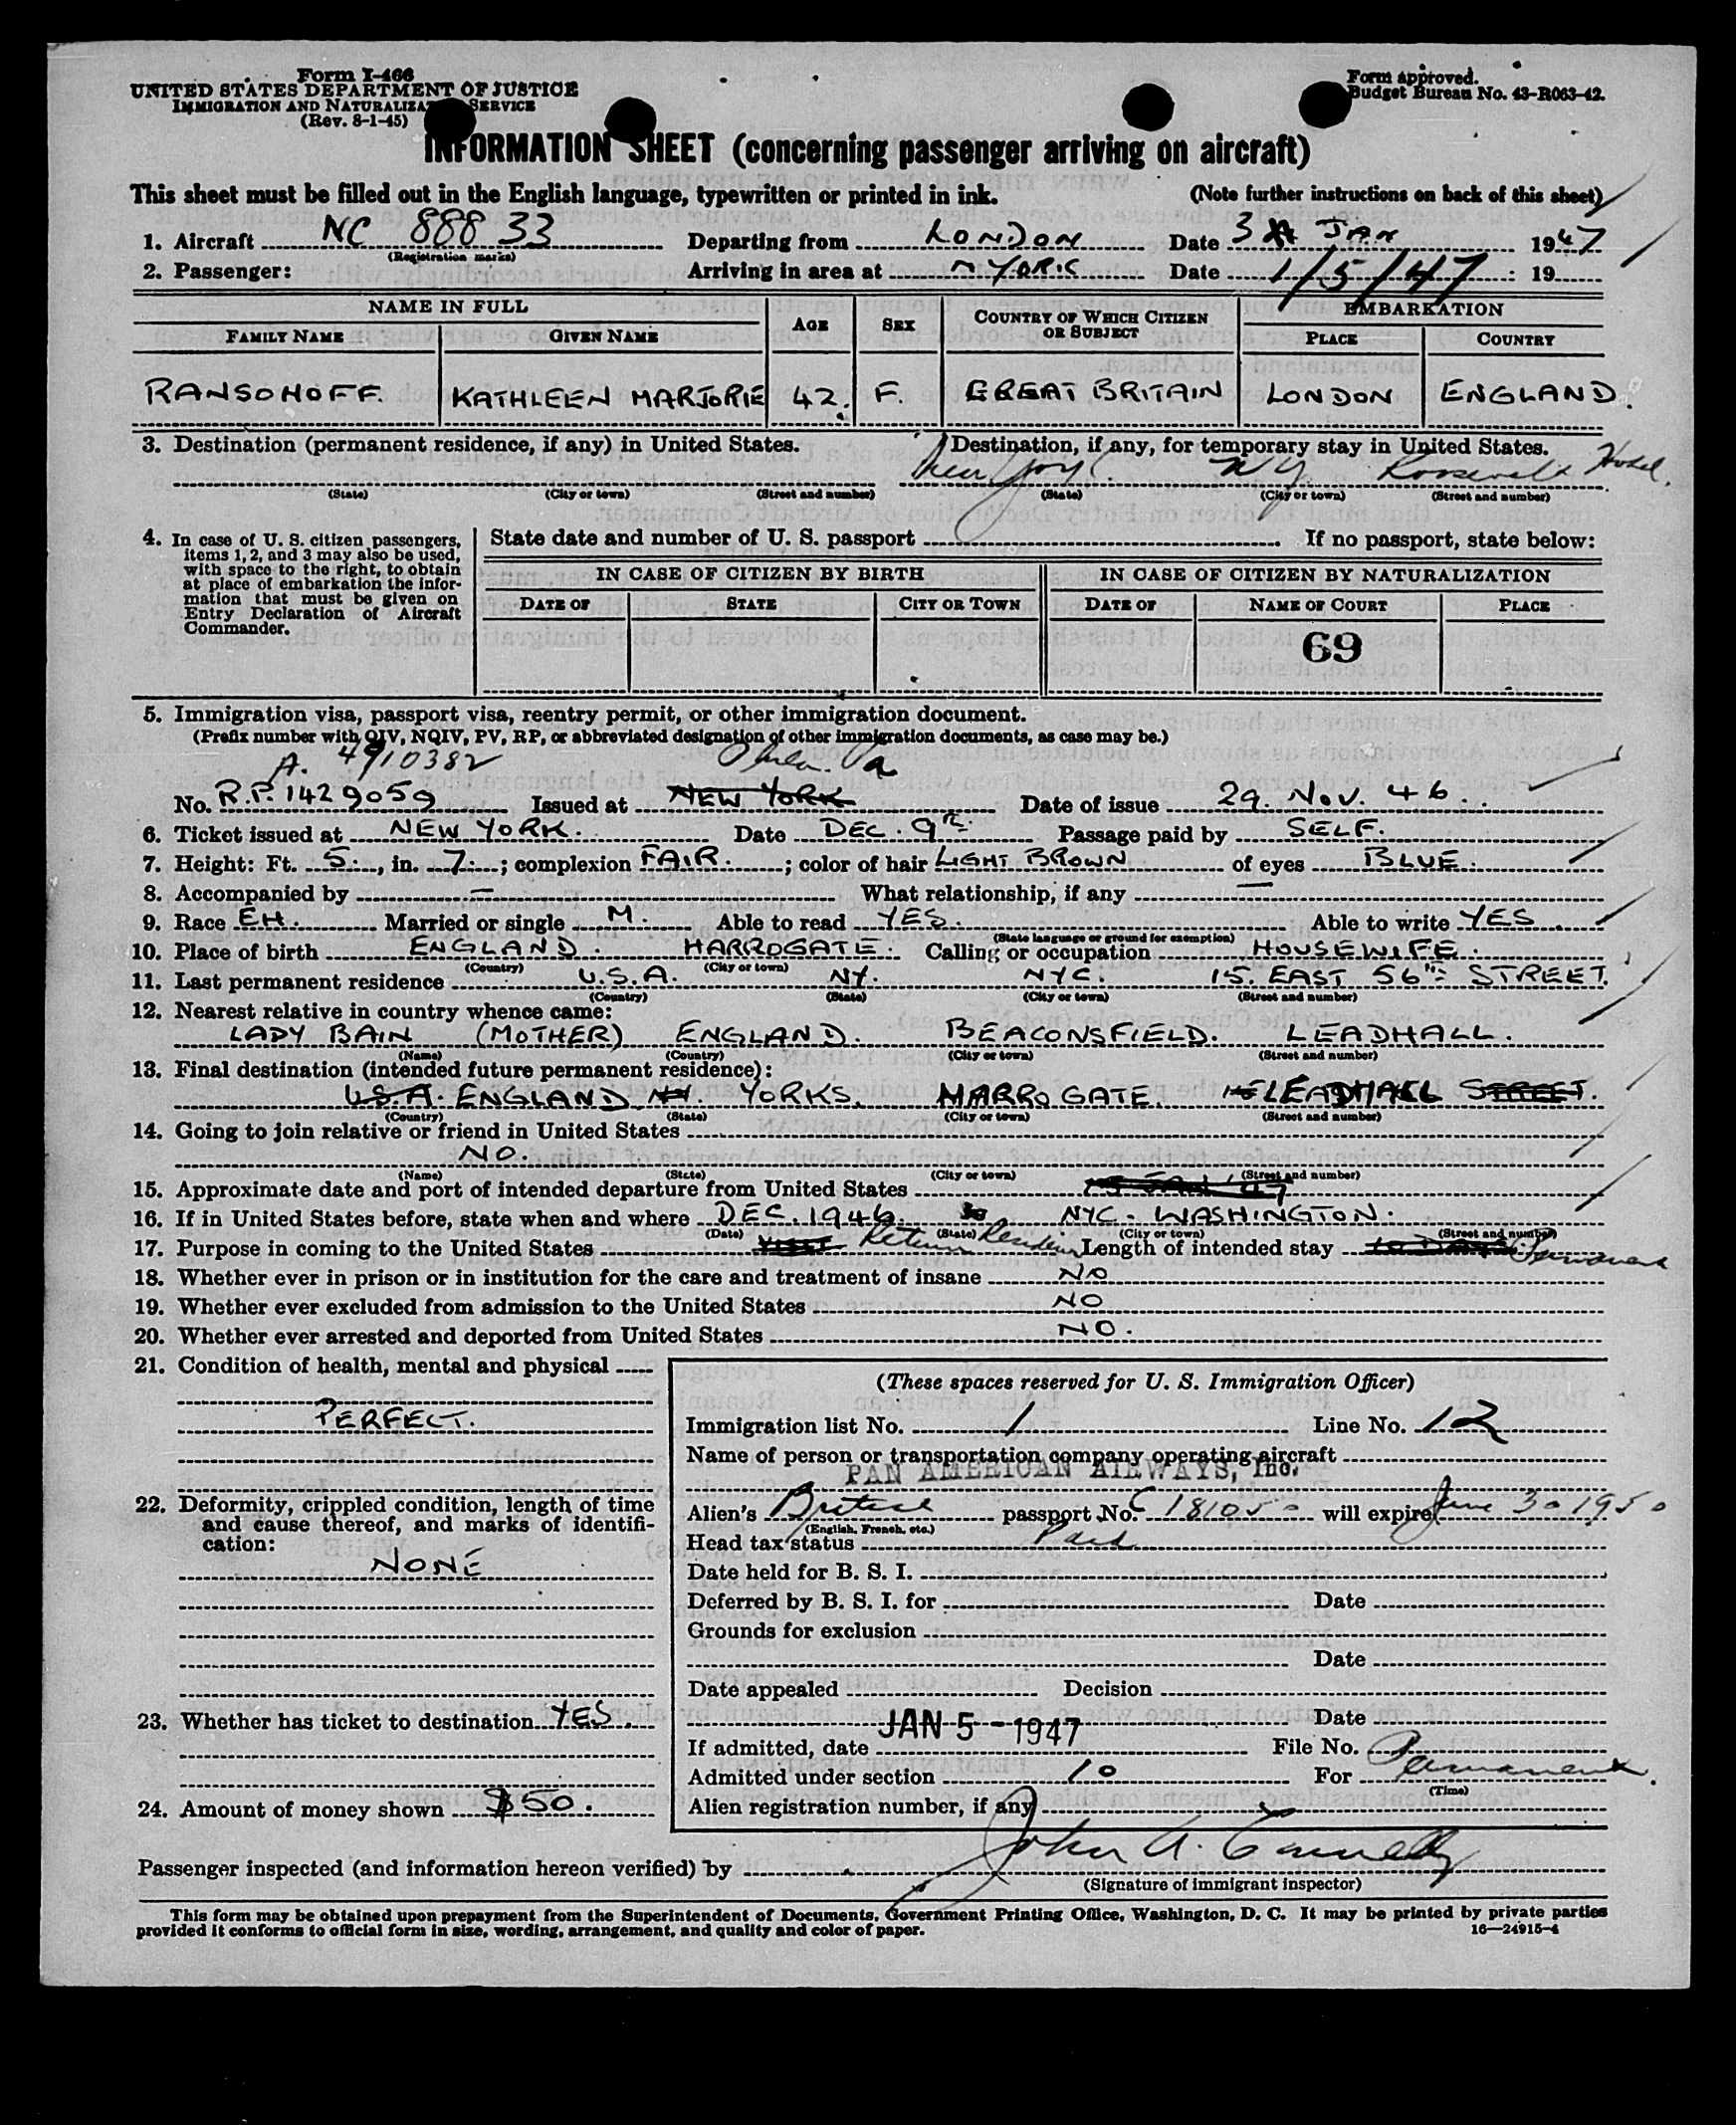 Form I-466
UNITED STATES DEPARTMENT OF JUSTICE
IMMIGRATION AND NATURALIZATION SERVICE
(Rev. 8-1-45)
Form approved.
Budget Bureau No. 43-R063-42.
INFORMATION SHEET (concerning passenger arriving on aircraft)
This sheet must be filled out in the English language, typewritten or printed in ink. (Note further instructions on back of this sheet)
1. Aircraft NC 88833 Departing from LONDON Date 3 JAN 1947
(Registration marks)
2. Passenger: Arriving in area at N YORK Date 1/5/47 19
NAME IN FULL AGE SEX COUNTRY OF WHICH CITIZEN OR SUBJECT EMBARKATION
FAMILY NAME GIVEN NAME PLACE COUNTRY
RANSOHOFF. KATHLEEN MARJORIE 42. F. GREAT BRITAIN LONDON ENGLAND.
3. Destination (permanent residence, if any) in United States. Destination, if any, for temporary stay in United States.
New York NY Roosevelt Hotel.
(State) (City or town) (Street and number) (State) (City or town) (Street and number)
4. In case of U. S. citizen passengers, items 1, 2, and 3 may also be used, with space to the right, to obtain at place of embarkation the information that must be given on Entry Declaration of Aircraft Commander.
State date and number of U. S. passport If no passport, state below:
IN CASE OF CITIZEN BY BIRTH IN CASE OF CITIZEN BY NATURALIZATION
DATE OF STATE CITY OR TOWN DATE OF NAME OF COURT PLACE
69
5. Immigration visa, passport visa, reentry permit, or other immigration document.
(Prefix number with QIV, NQIV, PV, RP, or abbreviated designation of other immigration documents, as case may be.)
A. 4910382 Phila. Pa
No. R.P. 1429059 Issued at NEW YORK Date of issue 29. NOV. 46.
6. Ticket issued at NEW YORK. Date DEC. 9th Passage paid by SELF.
7. Height: Ft. 5., in. 7.; complexion FAIR.; color of hair LIGHT BROWN of eyes BLUE.
8. Accompanied by — What relationship, if any —
9. Race EH. Married or single M. Able to read YES. Able to write YES.
(State language or ground for exemption)
10. Place of birth ENGLAND. HARROGATE. Calling or occupation HOUSEWIFE.
(Country) (City or town)
11. Last permanent residence U.S.A. NY. NYC. 15. EAST 56th STREET.
(Country) (State) (City or town) (Street and number)
12. Nearest relative in country whence came:
LADY BAIN (MOTHER) ENGLAND. BEACONSFIELD. LEADHALL.
(Name) (Country) (City or town) (Street and number)
13. Final destination (intended future permanent residence):
U.S.A. ENGLAND NY. YORKS. HARROGATE. LEADHALL STREET.
(Country) (State) (City or town) (Street and number)
14. Going to join relative or friend in United States
NO.
(Name) (State) (City or town) (Street and number)
15. Approximate date and port of intended departure from United States 15 JAN 47
16. If in United States before, state when and where DEC. 1946. NYC - WASHINGTON.
(Date) (State) (City or town) (Street and number)
17. Purpose in coming to the United States VISIT Return Residence Length of intended stay Permanent
18. Whether ever in prison or in institution for the care and treatment of insane NO
19. Whether ever excluded from admission to the United States NO
20. Whether ever arrested and deported from United States NO.
21. Condition of health, mental and physical
PERFECT.
22. Deformity, crippled condition, length of time and cause thereof, and marks of identification:
NONE
23. Whether has ticket to destination YES.
24. Amount of money shown $50.
(These spaces reserved for U. S. Immigration Officer)
Immigration list No. 1 Line No. 12
Name of person or transportation company operating aircraft
PAN AMERICAN AIRWAYS, Inc.
Alien's British passport No. C 181050 will expire June 30 1950
(English, French, etc.)
Head tax status Paid
Date held for B. S. I.
Deferred by B. S. I. for Date
Grounds for exclusion
Date
Date appealed Decision
Date
If admitted, date JAN 5 - 1947 File No.
Admitted under section 10 For Permanent.
(Time)
Alien registration number, if any
Passenger inspected (and information hereon verified) by John A.
(Signature of immigrant inspector)
This form may be obtained upon prepayment from the Superintendent of Documents, Government Printing Office, Washington, D. C. It may be printed by private parties
provided it conforms to official form in size, wording, arrangement, and quality and color of paper. 16—24915-4